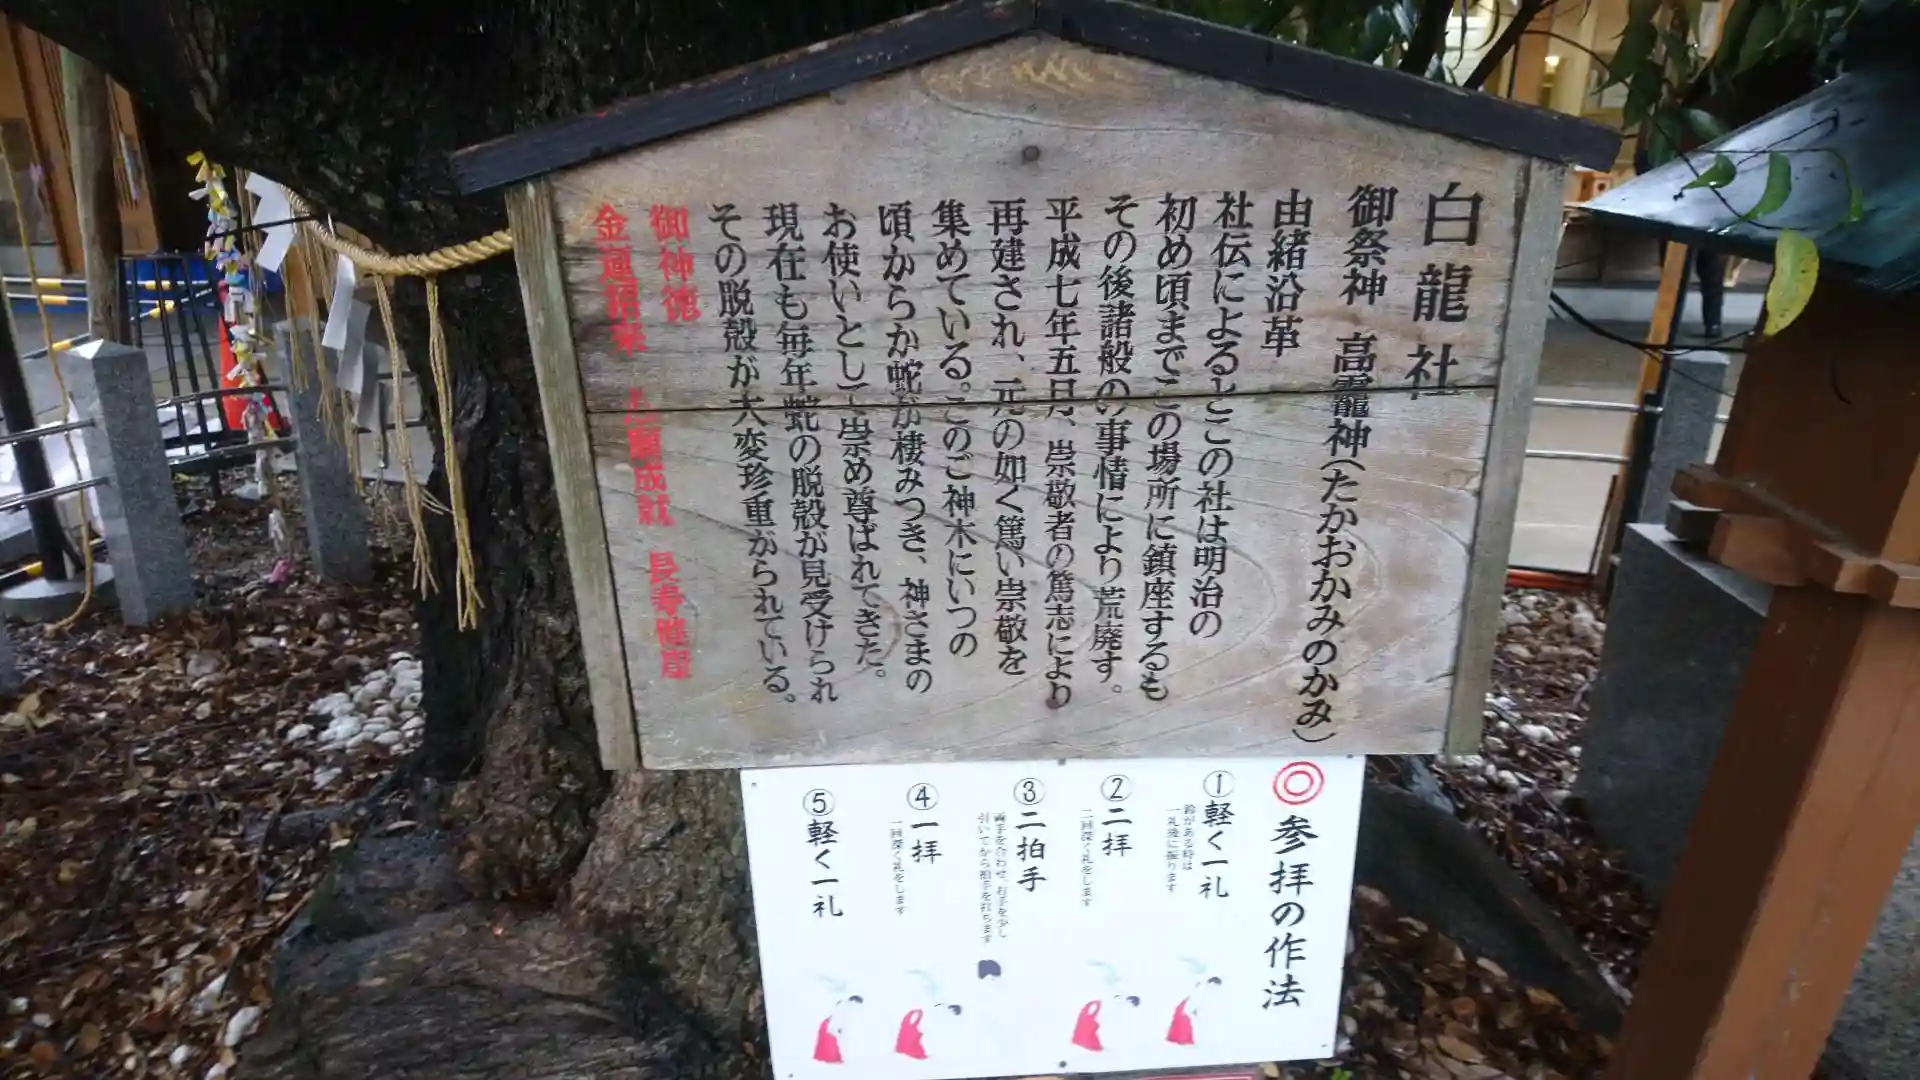 白龍社
御祭神 高龗神(たかおかみのかみ)
由緒沿革
社伝によるとこの社は明治の
初め頃までこの場所に鎮座するも
その後諸般の事情により荒廃す。
平成七年五月、崇敬者の篤志により
再建され、元の如く篤い崇敬を
集めている。このご神木にいつの
頃からか蛇が棲みつき、神さまの
お使いとして崇め尊ばれてきた。
現在も毎年蛇の脱殻が見受けられ
その脱殻が大変珍重がられている。
御神徳
金運招来 心願成就 長寿健康
◎参拝の作法
①軽く一礼
鈴がある時は
一礼後に振ります
②二拝
二回深く礼をします
③二拍手
両手を合わせ、右手を少し
引いてから拍手を打ちます
④一拝
一回深く礼をします
⑤軽く一礼